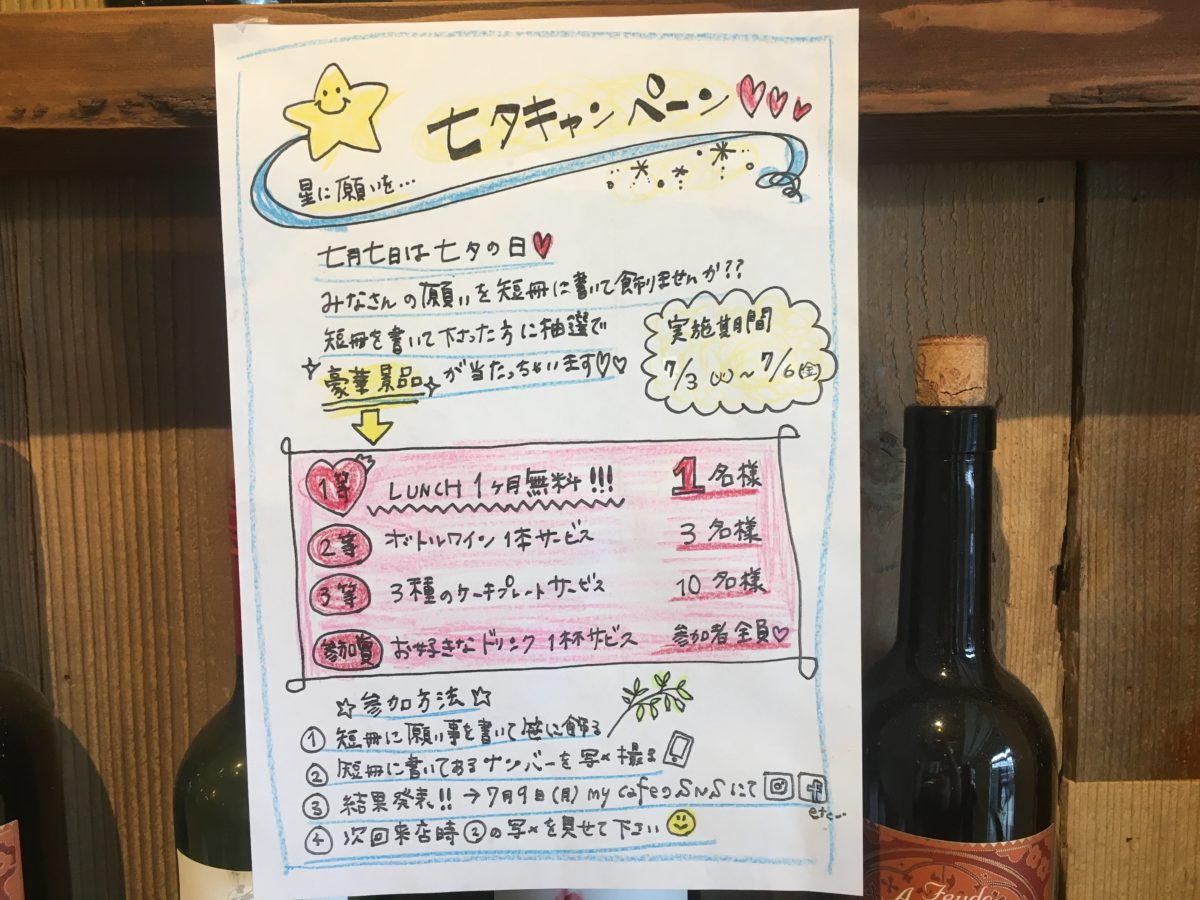 七夕キャンペーン
星に願いを…
七月七日は七夕の日
みなさんの願いを短冊に書いて飾りませんか??
短冊を書いて下さった方に抽選で
豪華景品が当たっちゃいます♡♡
実施期間
7/3(火)～7/6(金)
1等 LUNCH 1ヶ月無料!!! 1名様
2等 ボトルワイン1本サービス 3名様
3等 3種のケーキプレートサービス 10名様
参加賞 お好きなドリンク1杯サービス 参加者全員♡
☆参加方法☆
① 短冊に願い事を書いて笹に飾る
② 短冊に書いてあるナンバーを写メ撮る
③ 結果発表!!→7月9日(月) my cafeのSNSにて
etc...
④ 次回来店時②の写メを見せて下さい
A Feudo